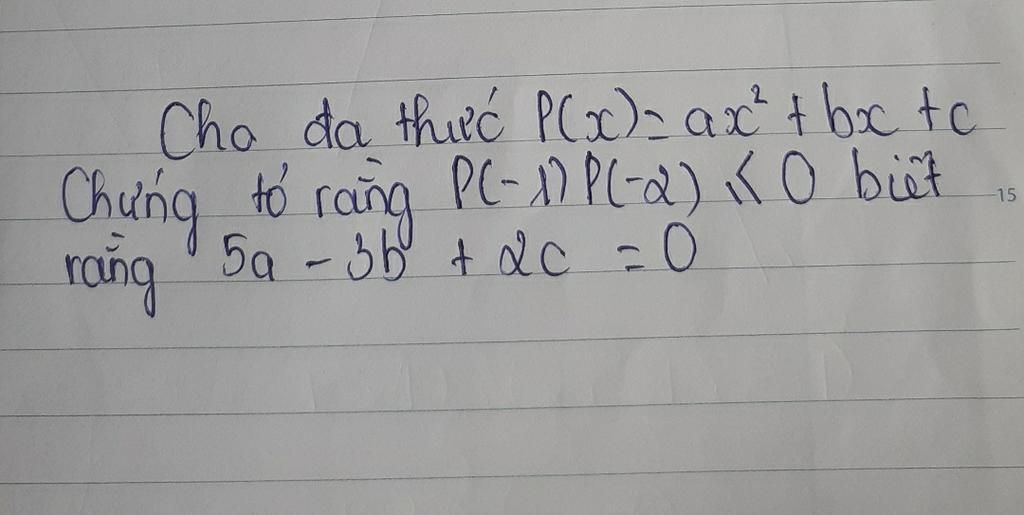 Cho đa thức P(x) = ax² + bx + c
Chứng tỏ rằng P(-1)P(-2) ≤ 0 biết
15
rằng 5a - 3b + 2c = 0